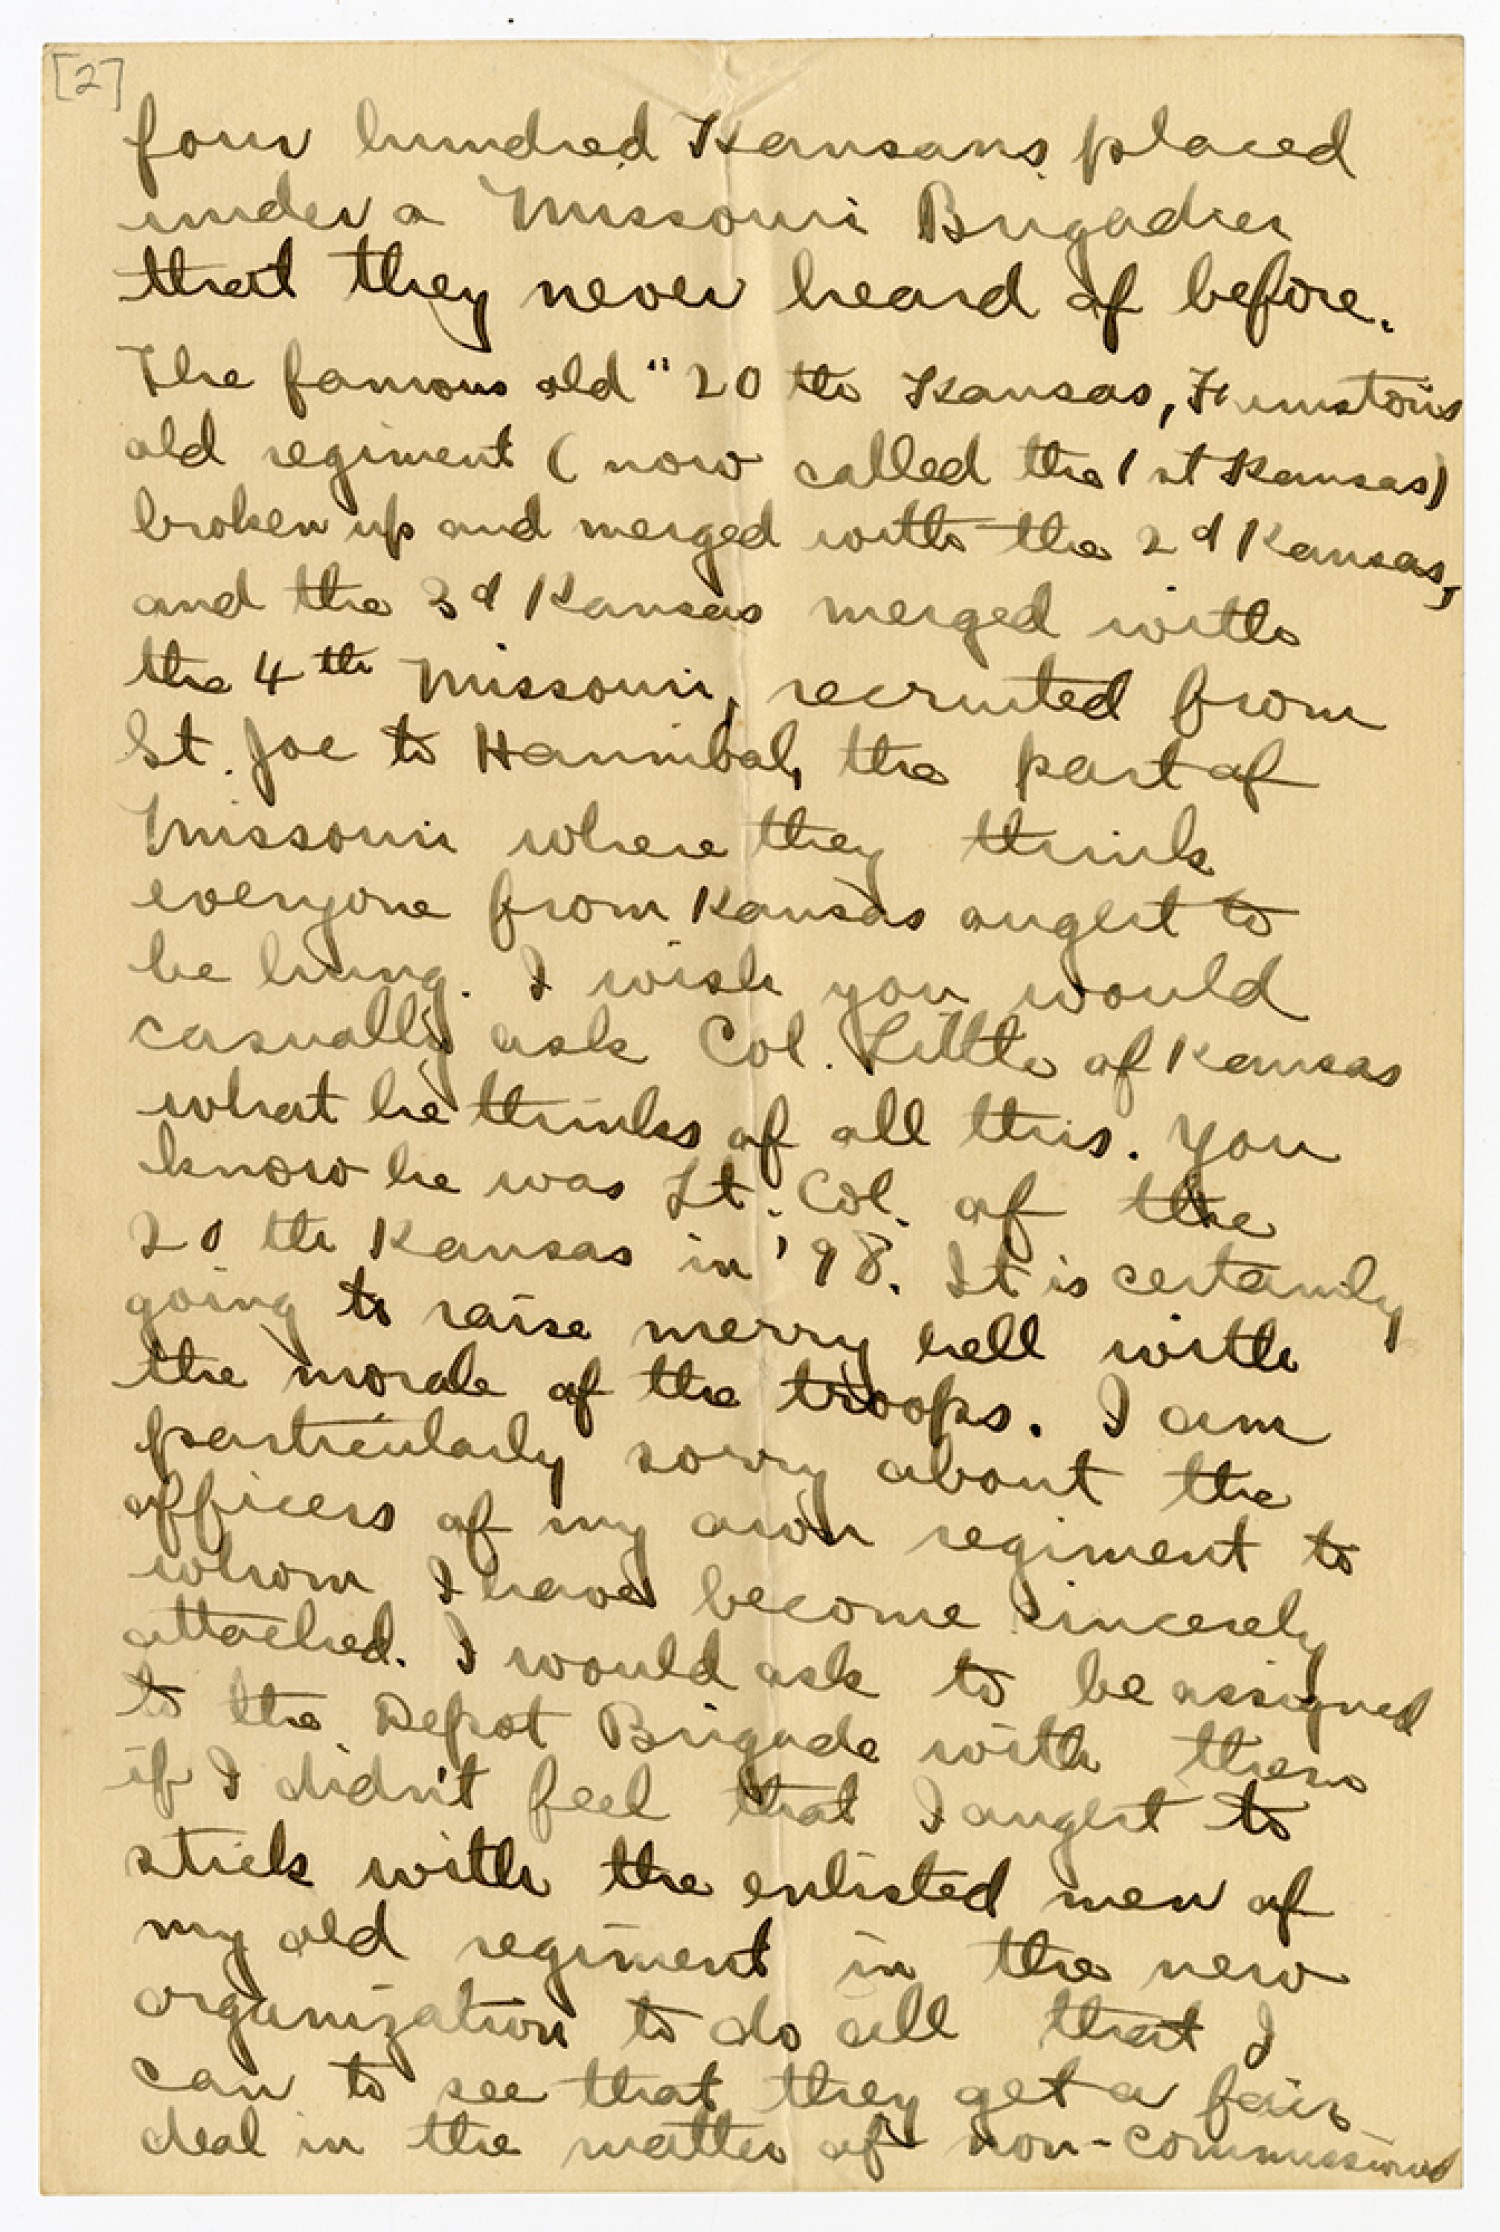 [2]
four hundred Kansans placed
under a Missouri Brigadier
that they never heard of before.
The famous old "20 th Kansas, Funston's
old regiment (now called the 1st Kansas)
broken up and merged with the 2d Kansas,
and the 3d Kansas merged with
the 4th Missouri, recruited from
St. Joe to Hannibal, the part of
Missouri where they think
everyone from Kansas aught to
be hung. I wish you would
casually ask Col. Little of Kansas
what he thinks of all this. You
know he was Lt. Col. of the
20 th Kansas in '98. It is certainly
going to raise merry hell with
the morale of the troops. I am
particularly sorry about the
officers of my own regiment to
whom I have become sincerely
attached. I would ask to be assigned
to the Depot Brigade with them
if I didn't feel that I aught to
stick with the enlisted men of
my old regiment in the new
organization to do all that I
can to see that they get a fair
deal in the matter of non-commissioned